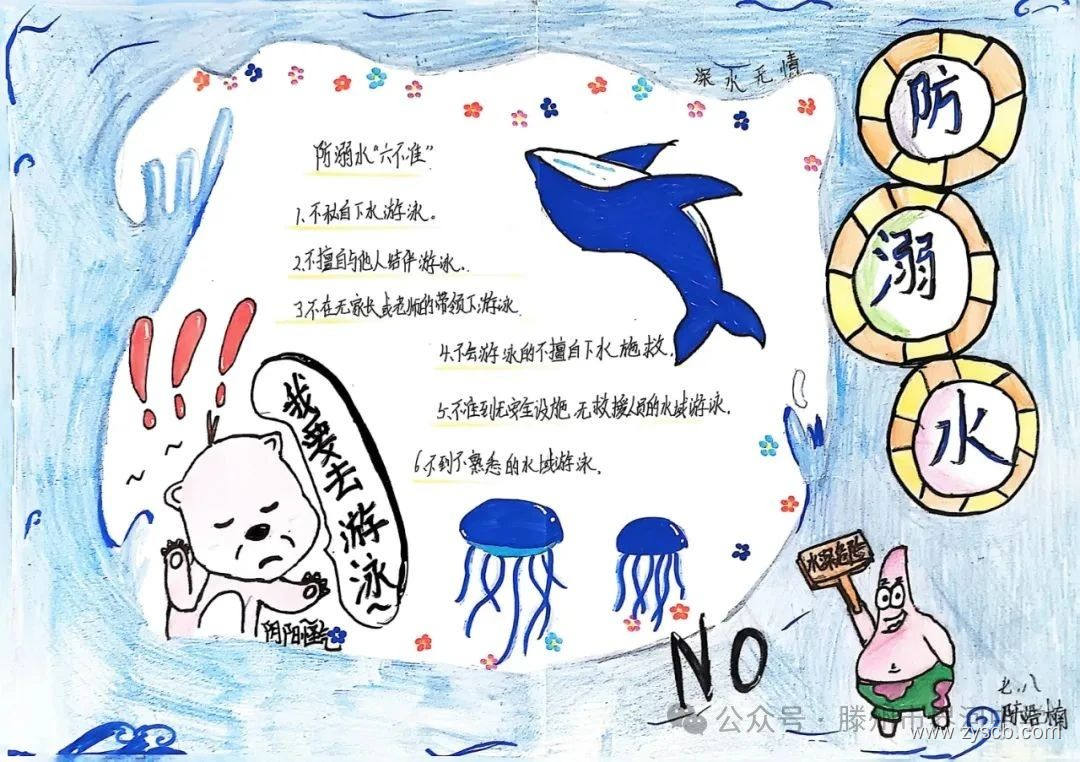 深水无情
防溺水
防溺水“六不准”
1、不私自下水游泳。
2、不擅自与他人结伴游泳。
3不在无家长或老师的带领下游泳
4、不会游泳的不擅自下水施救。
5、不准到无安全设施、无救援人员的水域游泳。
6、不到不熟悉的水域游泳。
!!!
我要去游泳~
阴阳怪气
NO
水深危险
七.八
陈浩楠
公众号·滕州市
www.zyscb.com